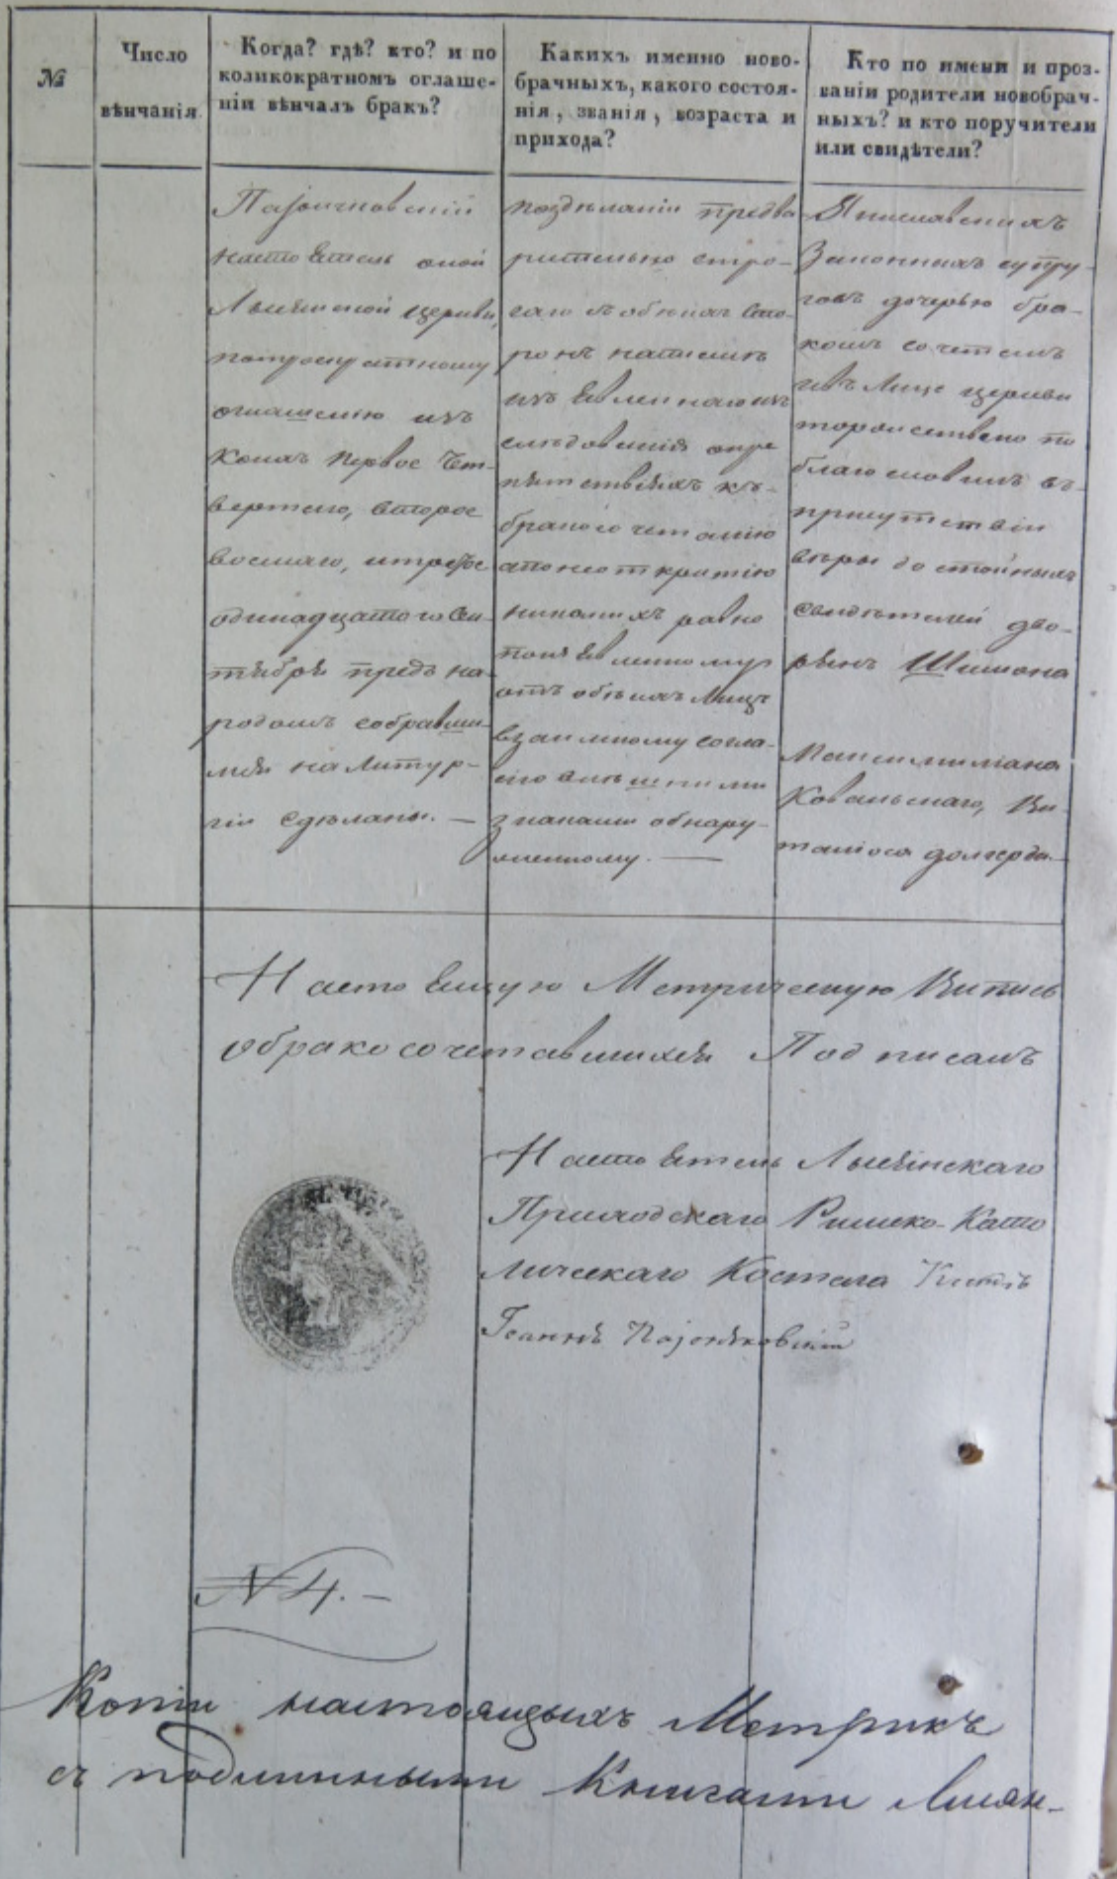 №
Число
вѣнчанія
Когда? гдѣ? кто? и по
коликократномъ оглаше-
ніи вѣнчалъ бракъ?
Какихъ именно ново-
брачныхъ, какого состоя-
нія, званія, возраста и
прихода?
Кто по имени и проз-
ваніи родители новобрач-
ныхъ? и кто поручители
или свидѣтели?
настоятель оной
церкви,
оглашенію изъ
коихъ первое Чет-
вертого, второе
восмаго, и трейтье
одинадцатого Сен-
тября предъ на-
родомъ собравши-
мся на Литур-
гіи сдѣланы. —
предва
рительно стро-
гаго обоихъ сто-
ронъ
слѣдованія о пре
пятствіяхъ къ-
брако сочетанію
а по неоткрытію
никакихъ равно
по изъявленному
отъ обѣихъ лицъ
взаимному согла-
сію внѣшними
знаками обнару-
женному. —
законныхъ супру-
говъ дочерью бра-
комъ сочеталъ
и въ Лице церкви
торжественно по
благословилъ въ-
присутствіи
вѣры достойныхъ
свидѣтелей дво-
рянъ Шимона
Максимиліана
Ковальскаго, Ви-
Настоящую Метрическую Выпись
о бракосочетавшихся Подписалъ
Настоятель
Приходскаго Римско-Като
лическаго Костела
Іоаннъ
№ 4. —
Копіи настоящыхъ Метрикъ
съ подлинными Книгами